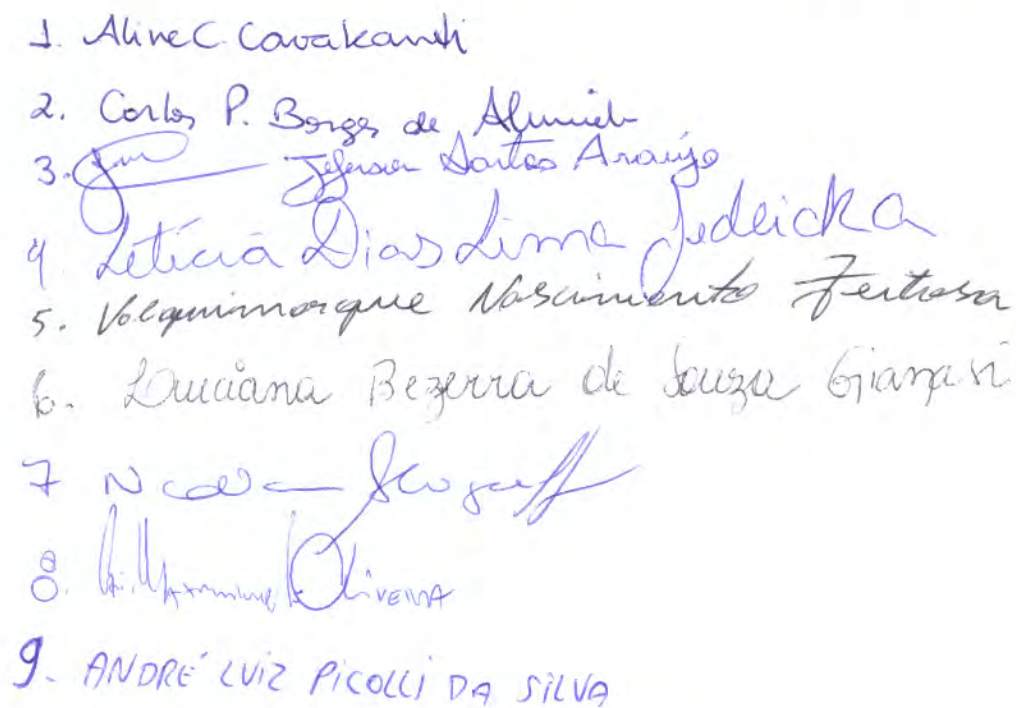 1. Aline C. Cavalcanti
2. Carlos P. Borges de Almeida
3. Jeferson Santos Araújo
4 Letícia Dias Lima Jedlicka
5. Valquimarque Nascimento
6. Luciana Bezerra de Souza Gianasi
7
8. Oliveira
9. ANDRÉ LUIZ PICOLLI DA SILVA